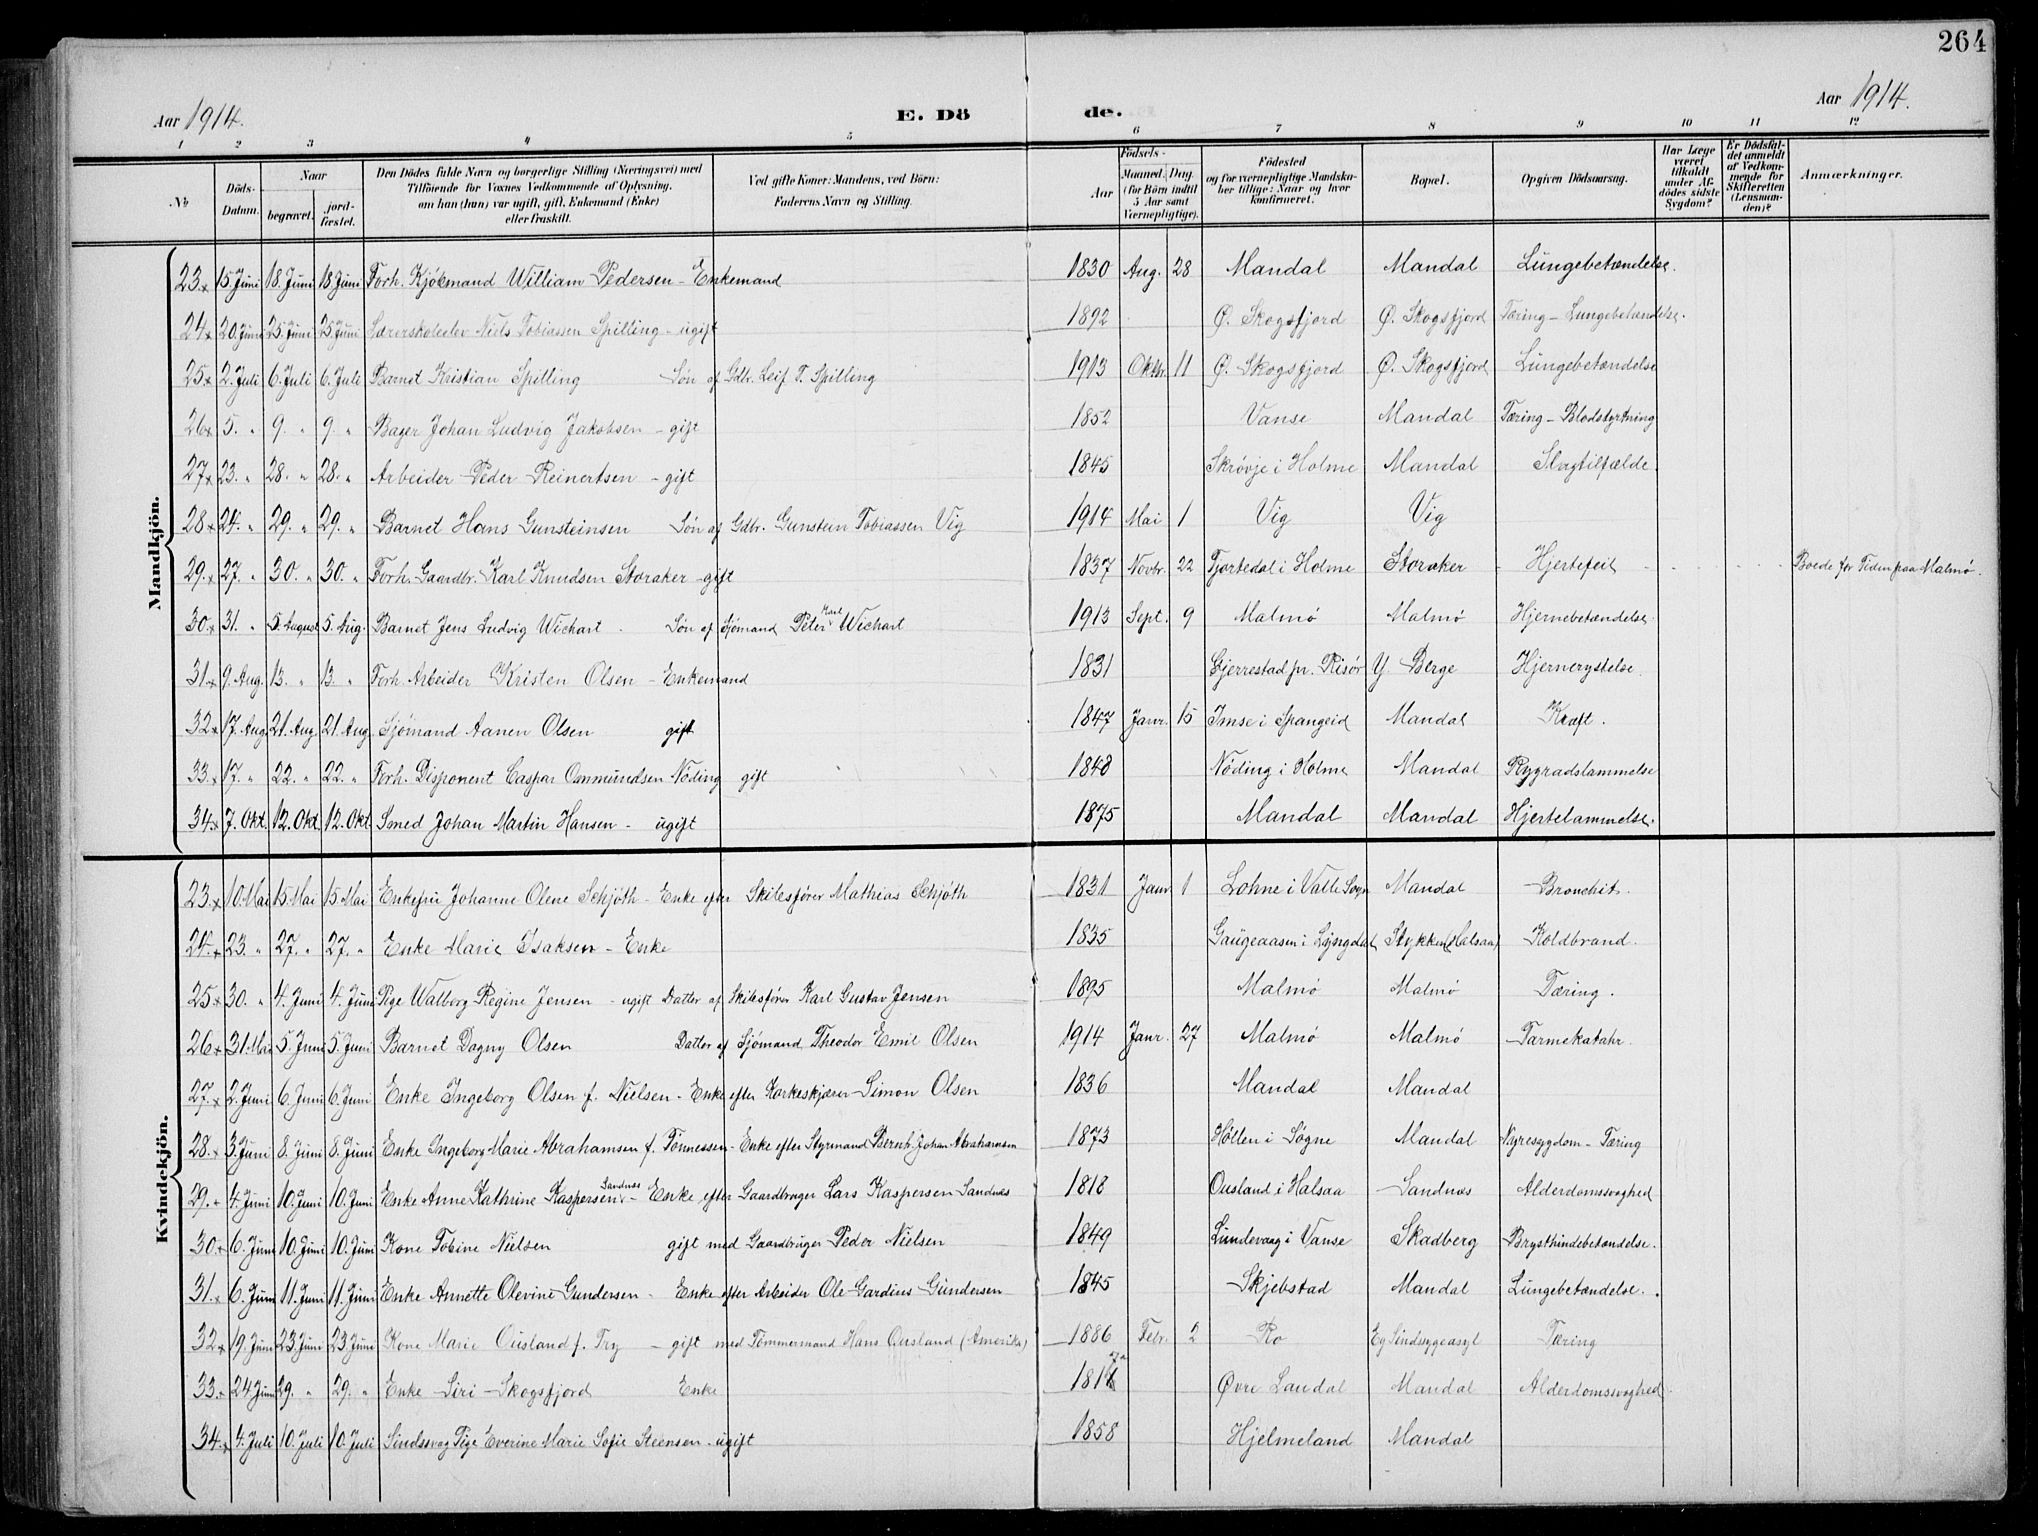 264
Aar 1914. E. Dö de. Aar 1914.
1 2 3 4 5 6 7 8 9 10 11 12
No Döds-Datum. Naar begravet. jordfæstet. Den Dödes fulde Navn og borgerlige Stilling (Næringsvei) med Tilföiende for Voxnes Vedkommende af Oplysning, om han (hun) var ugift, gift, Enkemand (Enke) eller fraskilt. Ved gifte Koner: Mandens, ved Börn: Faderens Navn og Stilling. Födsels- Aar Maaned. Dag. (for Börn indtil 5 Aar samt Værnepligtige). Födested og for værnepligtige Mandskaber tillige: Naar og hvor konfirmeret. Bopæl. Opgiven Dödsaarsag. Har Læge været tilkaldt under Afdödes sidste Sygdom? Er Dödsfaldet anmeldt af Vedkommende for Skifteretten (Lensmanden)? Anmærkninger.
Mandkjön.
23 x 15 Juni 18. Juni 18 Juni Forh. Kjöbmand William Pedersen - Enkemand 1830 Aug. 28 Mandal Mandal Lungebetændelse.
24 x 20 Juni 25 Juni 25 Juni Niels Tobiassen Spilling - ugift 1892 Ø. Skogsfjord Ø. Skogsfjord Tæring - Lungebetændelse.
25 x 2. Juli 6. Juli 6. Juli Barnet Kristian Spilling Søn af Gdbr. Leif T. Spilling 1913 Oktbr. 11 Ø. Skogsfjord Ø. Skogsfjord Lungebetændelse
26 x 5. " 9. " 9. " Bager Johan Ludvig Jakobsen - gift 1852 Vanse Mandal Tæring - Blodstyrtning
27 x 23. " 28. " 28. " Arbeider Peder Reinertsen - gift 1845 Skrøvje i Holme Mandal Slagtilfælde.
28 x 24. " 29. " 29. " Barnet Hans Gunsteinsen Søn af Gdbr. Gunstein Tobiassen Vig 1914 Mai 1 Vig Vig
29. x 27. " 30. " 30. " Forh. Gaardbr. Karl Knudsen Storaker - gift 1837 Novbr. 22 Fjortedal i Holme Storaker - Hjertefeil Boede før Tiden paa Malmø.
30. x 31. " 5. August 5. Aug. Barnet Jens Ludvig Wichart. Søn af Sjømand Peter Karl Wichart 1913 Sept. 9 Malmø Malmø Hjernebetændelse.
31 x 9. Aug. 13. " 13. " Forh. Arbeider Kristen Olsen - Enkemand 1831 Gjerrestad pr. Risør Y. Berge Hjernerystelse.
32 x 17. Aug 21. Aug 21 Aug Sjømand Aanen Olsen gift 1847 Janr. 15 Imse i Spangeid Mandal Kræft.
33. x 17. " 22. " 22. " Forh. Disponent Caspar Ommundsen Nöding gift 1848 Nöding i Holme Mandal Rygradslammelse
34 x 7. Okt. 12. Okt 12. Okt Smed Johan Martin Hansen - ugift 1875 Mandal Mandal Hjertelammelse.
Kvindekjön.
23 x 10. Mai 15. Mai 15 Mai Enkefru Johanne Olene Schjöth - Enke efter Skibsfører Mathias Schjöth 1831 Janr 1 Lohne i Valle Sogn Mandal Bronchit.
24. x 23. " 27. " 27. " Enke Marie Isaksen - Enke 1835 Gaugeaasen i Lyngdal Stykken (Halsaa) Koldbrand.
25 x 30. " 4. Juni 4. Juni Pige Walborg Regine Jensen - ugift Datter af Skibsfører Karl Gustav Jensen 1895 Malmø Malmø Tæring.
26 x 31. Mai 5. Juni 5. Juni Barnet Dagny Olsen Datter af Sjømand Theodor Emil Olsen 1914 Janr. 27 Malmø Malmø Tarmekatahr.
27. x 2. Juni 6. Juni 6. Juni Enke Ingeborg Olsen f. Nielsen - Enke efter Korkeskjærer Simon Olsen 1836 Mandal Mandal
28. x 3. Juni 8. Juni 8. Juni Enke Ingeborg Marie Abrahamsen f. Tönnessen - Enke efter Styrmand Bernh. Johan Abrahamsen 1873 Höllen i Søgne Mandal Nyresygdom - Tæring
29. x 4. Juni 10. Juni 10. Juni Enke Anne Kathrine Kaspersen Sandnes - Enke efter Gaardbruger Lars Kaspersen Sandnæs 1818 Ousland i Halsaa Sandnæs Alderdomssvaghed
30 x 6. Juni 10. Juni 10. Juni Kone Tobine Nielsen gift med Gaardbruger Peder Nielsen 1849 Lundevaag i Vanse Skadberg Brysthindebetændelse.
31. x 6. Juni 11. Juni 11. Juni Enke Annette Olevine Gundersen - Enke efter Arbeider Ole Gardius Gundersen 1845 Skjebstad Mandal Lungebetændelse.
32 x 19. Juni 23. Juni 23 Juni Kone Marie Ousland f. Try - gift med Tømmermand Hans Ousland (Amerika) 1886 Febr. 2 Ro Eg Sindsygeasyl Tæring
33. x 24 Juni 29. " 29. " Enke Siri Skogsfjord Enke Øvre Landal Mandal Alderdomssvaghed
34. x 4. Juli 10. Juli 10. Juli Sindssvag Pige Everine Marie Sofie Steensen - ugift 1858 Hjelmeland Mandal